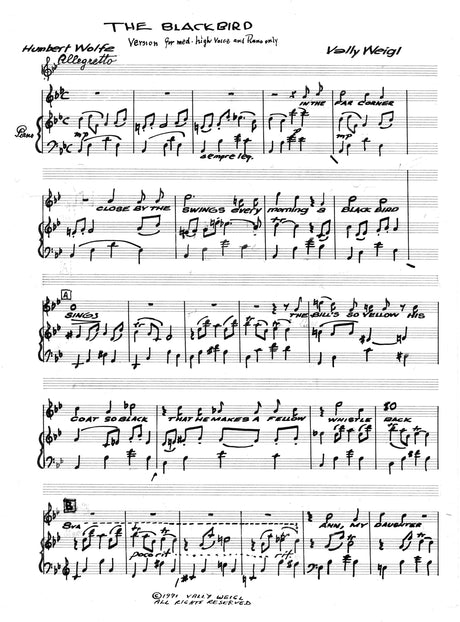 THE BLACKBIRD
Version for med. high Voice and Piano only
Humbert Wolfe
Vally Weigl
Allegretto
IN THE FAR CORNER
Piano
mp
mp
sempre leg.
CLOSE BY THE SWINGS every morning a BLACK BIRD
A
SINGS THE BILL'S SO YELLOW HIS
COAT SO BLACK THAT HE MAKES A FELLOW WHISTLE BACK
B
8va
ANN, MY DAUGHTER
poco rit.
rit.
©1991 VALLY WEIGL
ALL RIGHTS RESERVED